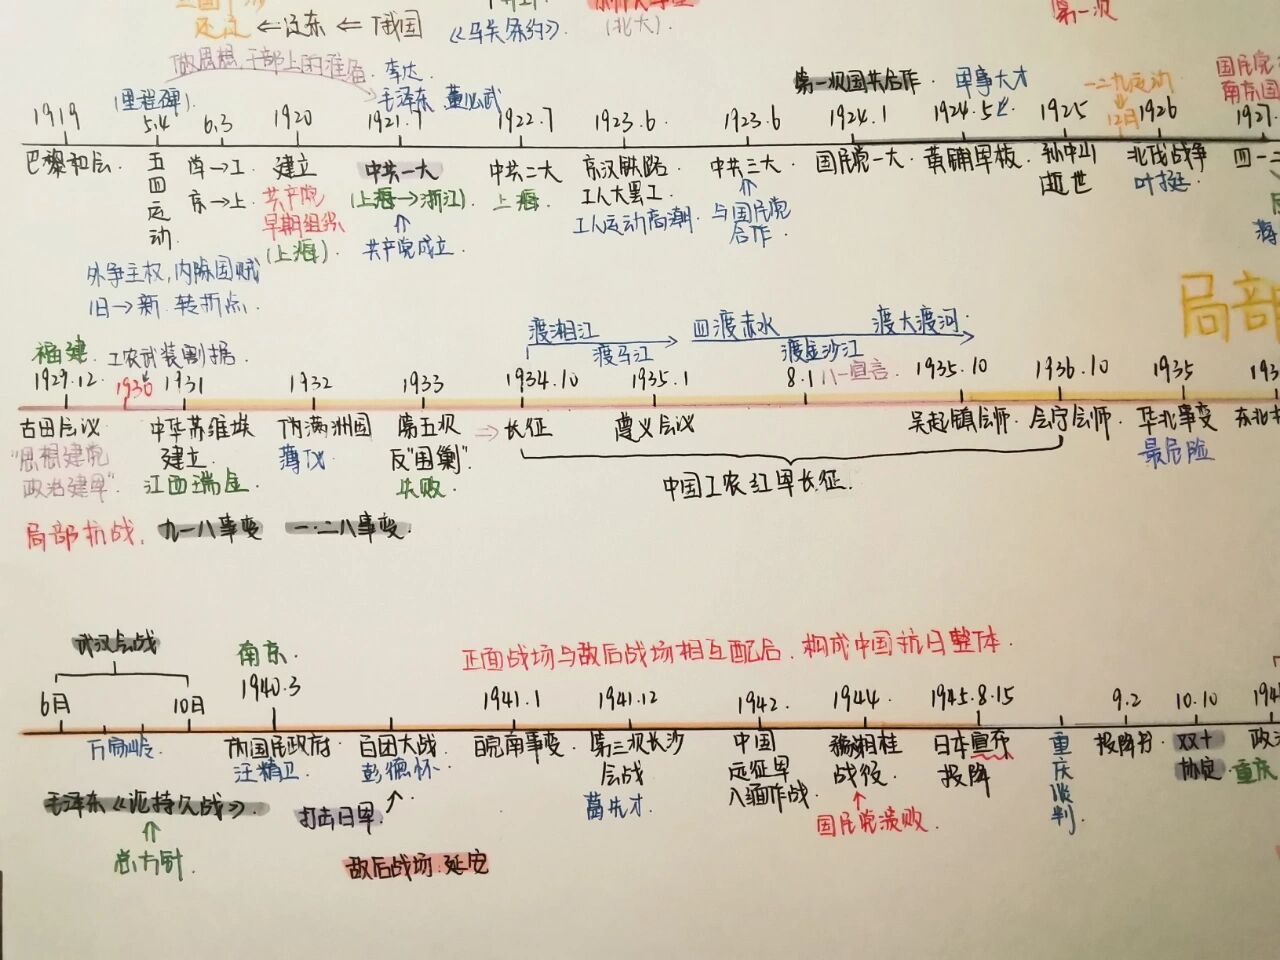 还辽 ⇐ 辽东 ⇐ 俄国 《马关条约》. (北大).
第一次
做思想,干部上的准备. 李达.
毛泽东 董必武
第一次国共合作. 军事人才 一二九运动 国民党
南京国
1919 (里程碑). 5.4 6.3 1920 1921.7 1922.7 1923.6. 1923.6 1924.1 1924.5 1925 12月 1926 1927.
巴黎和会. 五四运动. 学→工 建立 中共一大 中共二大 京汉铁路 中共三大. 国民党一大. 黄埔军校. 孙中山 北伐战争 四一二
京→上 共产党 (上海→浙江) 上海. 工人大罢工. 逝世 叶挺.
早期组织 工人运动高潮. 与国民党
(上海). 共产党成立. 合作.
外争主权,内除国贼
旧→新 转折点.
局部
渡湘江 四渡赤水 渡大渡河.
渡乌江 渡金沙江
福建. 工农武装割据.
1929.12. 1930 1931 1932 1933 1934.10 1935.1 8.1 八一宣言. 1935.10 1936.10 1935 193
古田会议 中华苏维埃 伪满洲国 第五次 ⇒ 长征 遵义会议 吴起镇会师. 会宁会师. 华北事变 东北
"思想建党 建立. 溥仪 反"围剿". 最危险
政治建军". 江西瑞金. 失败.
中国工农红军长征.
局部抗战. 九一八事变 一·二八事变.
武汉会战
南京. 正面战场与敌后战场相互配合. 构成中国抗日整体.
6月 10月 1940.3 1941.1 1941.12 1942. 1944. 1945.8.15 9.2 10.10 194
万家岭. 伪国民政府. 百团大战. 皖南事变. 第三次长沙 中国 豫湘桂 日本宣布 重庆谈判. 投降书. 双十 政
汪精卫. 彭德怀. 会战 远征军 战役. 投降 协定. 重庆
毛泽东《论持久战》. 打击日军. 薛岳 入缅作战.
国民党溃败.
总方针.
敌后战场.延安